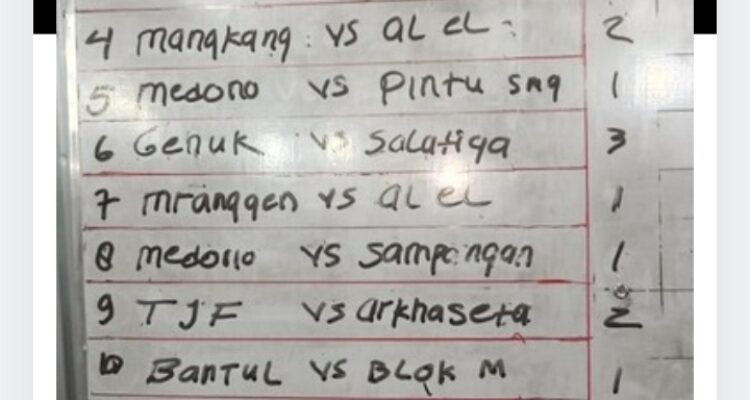 4 mangkang : VS aL eL : 2
5 medono VS Pintu smg 1
6 Genuk VS Salatiga 3
7 mranggen VS aL eL 1
8 medono VS Sampangan 1
9 TJF VS arkhaseta 2
10 BanTUL VS BLok M 1